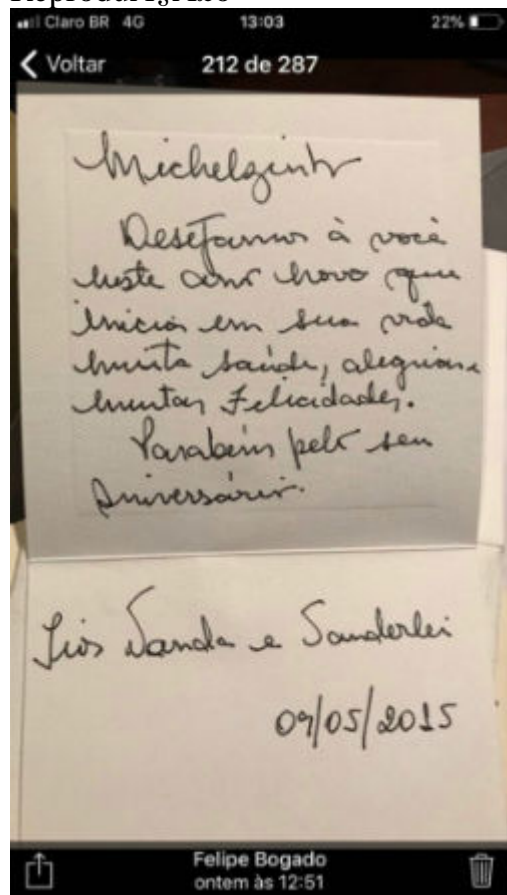 Claro BR 4G 13:03 22%
Voltar 212 de 287
Michelzinho
Desejamos à você
neste ano novo que
inicia em sua vida
muita saúde, alegrias e
muitas Felicidades.
Parabéns pelo seu
Aniversário.
Tios Vanda e Vanderlei
09/05/2015
Felipe Bogado
ontem às 12:51